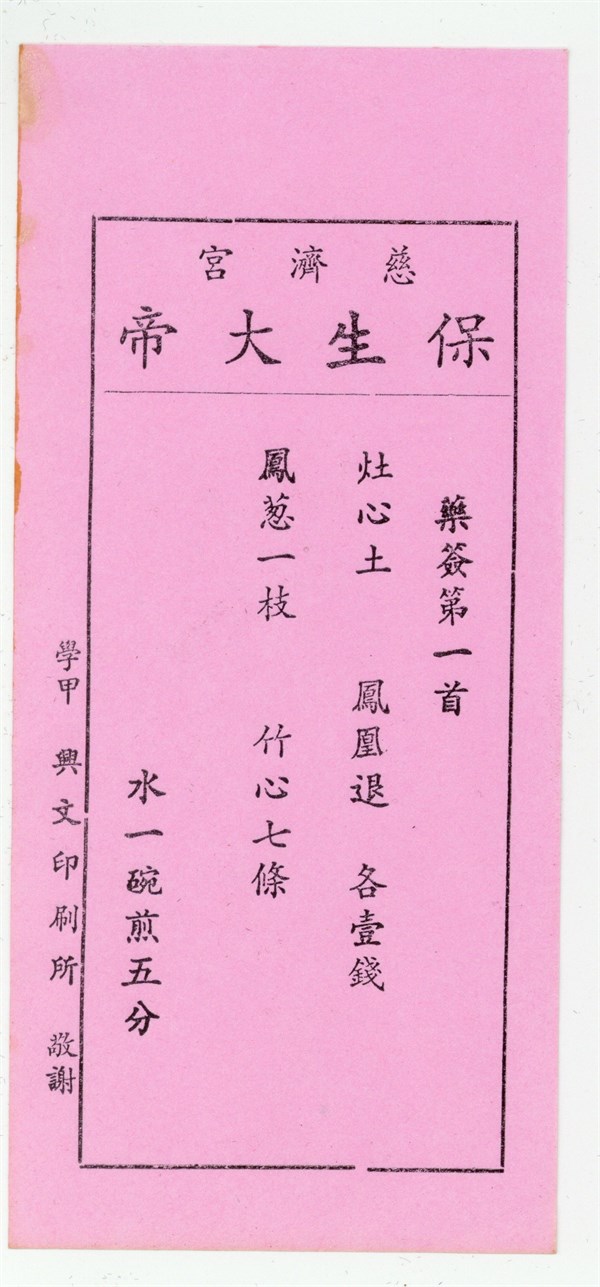 慈濟宮
保生大帝
藥簽第一首
灶心土 鳳凰退 各壹錢
鳳葱一枝 竹心七條
水一碗煎五分
學甲 興文印刷所 敬謝